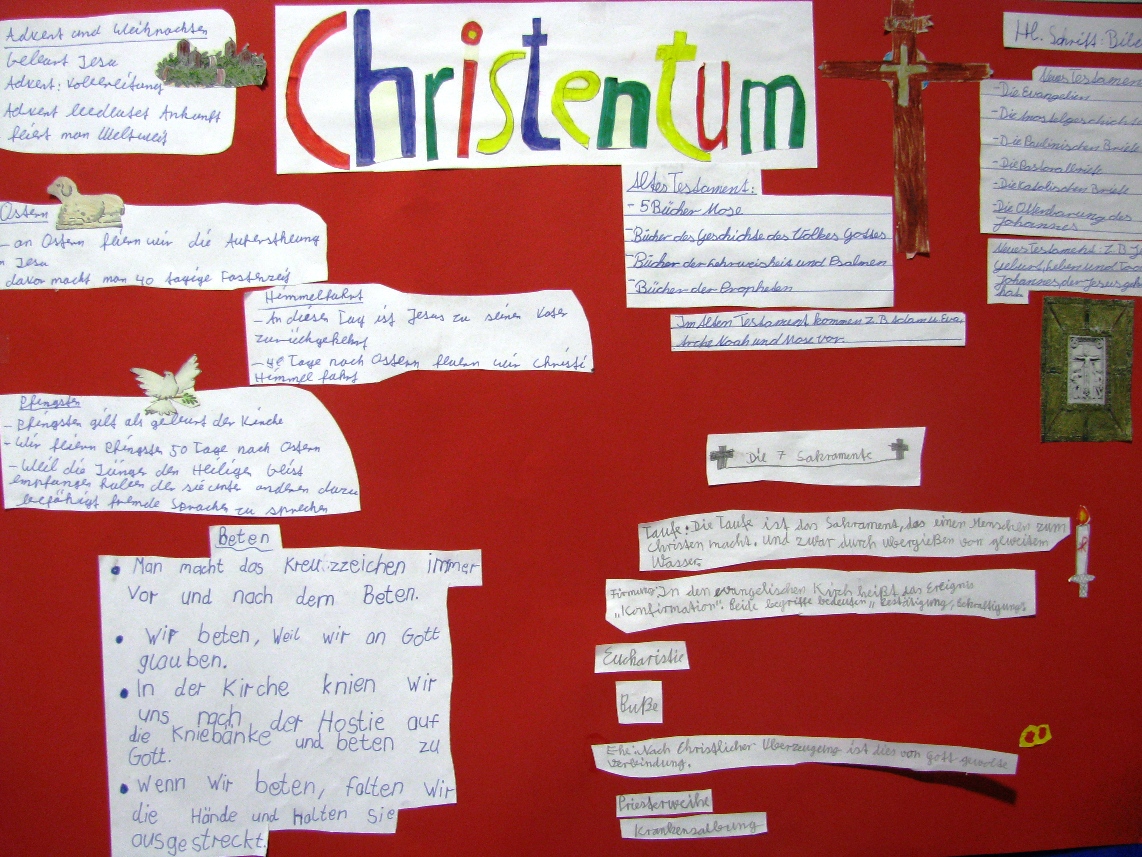 Christentum
Advent und Weihnachten
Geburt Jesu
Advent: Vorbereitung
Advent bedeutet Ankunft
feiert man Weltweit
Ostern
- an Ostern feiern wir die Auferstheung
n Jesu
davor macht man 40 tagige Fastenzeit
Himmelfahrt
- An diesen Tag ist Jesus zu seinen Vater
zurückgekehrt
- 40 Tage nach Ostern feiern wir Christi
Himmelfahrt
Pfingsten
- Pfingsten gilt als geburt der Kirche
- Wir feiern Pfingsten 50 Tage nach Ostern
- Weil die Jünger den Heiligen Geist
empfangen haben der sie unter anderen dazu
befähigt fremde Sprachen zu sprechen
Beten
• Man macht das Kreuzzeichen immer
Vor und nach dem Beten.
• Wir beten, Weil wir an Gott
glauben.
• In der Kirche knien Wir
uns nach der Hostie auf
die Kniebänke und beten zu
Gott.
• Wenn Wir beten, falten Wir
die Hände und halten Sie
ausgestreckt.
Altes Testament:
- 5 Bücher Mose
- Bücher des Geschichte des Volkes Gottes
- Bücher der Lehrweisheit und Psalmen
- Bücher der Propheten
Im Alten Testament kommen z.B Adam u. Eva
Arche Noah und Mose vor.
Hl. Schrift: Bibe
Neues Testamen
- Die Evangelien
- Die Apostelgeschichte
- Die Paulinischen Briefe
- Die Pastoralbriefe
- Die Katolischen Briefe
- Die Offenbarung des
Johannes
Neues Testament z.B Je
Geburt, Leben und Tod
Johannes der Jesus geta
hat
Die 7 Sakramente
Taufe: Die Taufe ist das Sakrament, das einen Menschen zum
Christen macht. und zwar durch übergießen von geweitem
Wasser.
Firmung: In den evangelischen Kirch heißt das Ereignis
„Konfirmation". Beide begriffe bedeuten „Bestätigung, Bekräftigung"
Eucharistie
Buße
Ehe: Nach Christlicher Uberzeugung ist dies von Gott gewollte
verbindung.
Priesterweihe
Krankensalbung